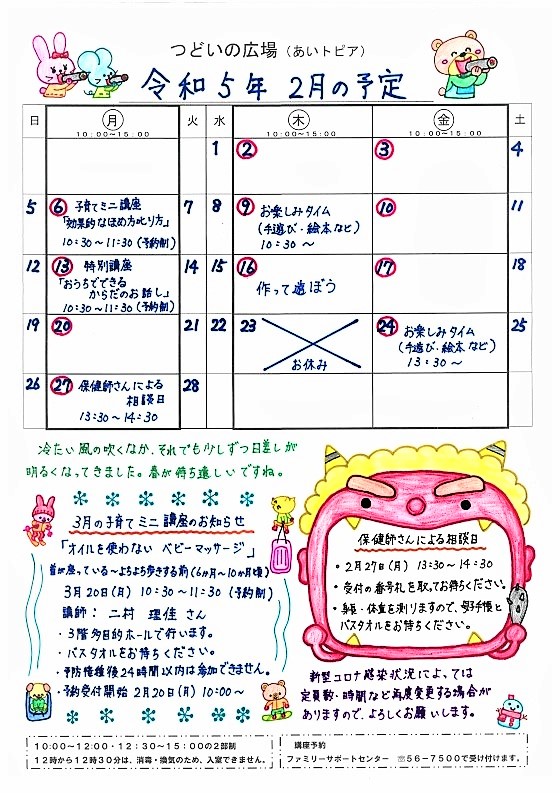 つどいの広場（あいトピア）
令和5年 2月の予定
日 月 火 水 木 金 土
10:00~15:00 10:00~15:00 10:00~15:00
1 2 3 4
5 6 子育てミニ講座 7 8 9 お楽しみタイム 10 11
「効果的なほめ方叱り方」 (手遊び・絵本など)
10:30~11:30 (予約制) 10:30~
12 13 特別講座 14 15 16 17 18
「おうちでできる 作って遊ぼう
からだのお話し」
10:30~11:30 (予約制)
19 20 21 22 23 24 お楽しみタイム 25
(手遊び・絵本など)
お休み 13:30~
26 27 保健師さんによる 28
相談日
13:30~14:30
冷たい風の吹くなか、それでも少しずつ日差しが
明るくなってきました。春が待ち遠しいですね。
3月の子育てミニ講座のお知らせ
「オイルを使わない ベビーマッサージ」
首が座っている~よちよち歩きする前(6か月~10か月頃)
3月20日(月) 10:30~11:30 (予約制)
講師: 二村 理佳 さん
・3階多目的ホールで行います。
・バスタオルをお持ちください。
・予防接種後24時間以内は参加できません。
・予約受付開始 2月20日(月) 10:00~
保健師さんによる相談日
・2月27日(月) 13:30~14:30
・受付の番号札を取ってお待ちください。
・身長・体重を測りますので、母子手帳と
バスタオルをお持ちください。
新型コロナ感染状況によっては
定員数・時間など再度変更する場合が
ありますので、よろしくお願いします。
10:00~12:00・12:30~15:00の2部制
12時から12時30分は、消毒・換気のため、入室できません。
講座予約
ファミリーサポートセンター ☎56-7500で受け付けます。